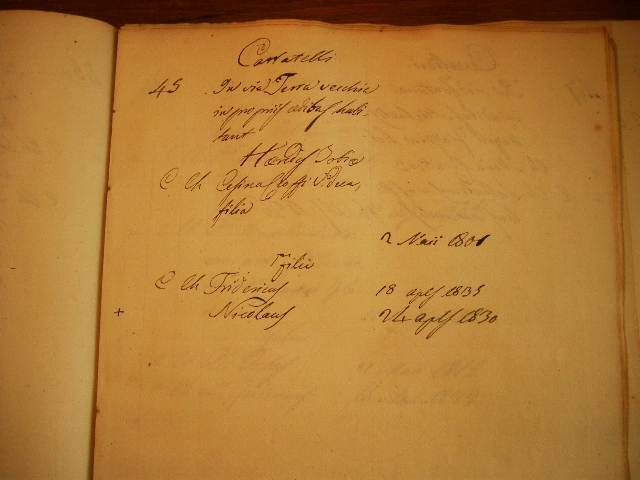 Carratelli
45 In via Terra vecchia
in propriis ædibus habi-
tant
Hæredes Tobiæ
C Ch Vidua,
filia
2 Maii 1801
Filii
C Ch Fridericus 18 aplis 1835
+ Nicolaus 24 aplis 1830